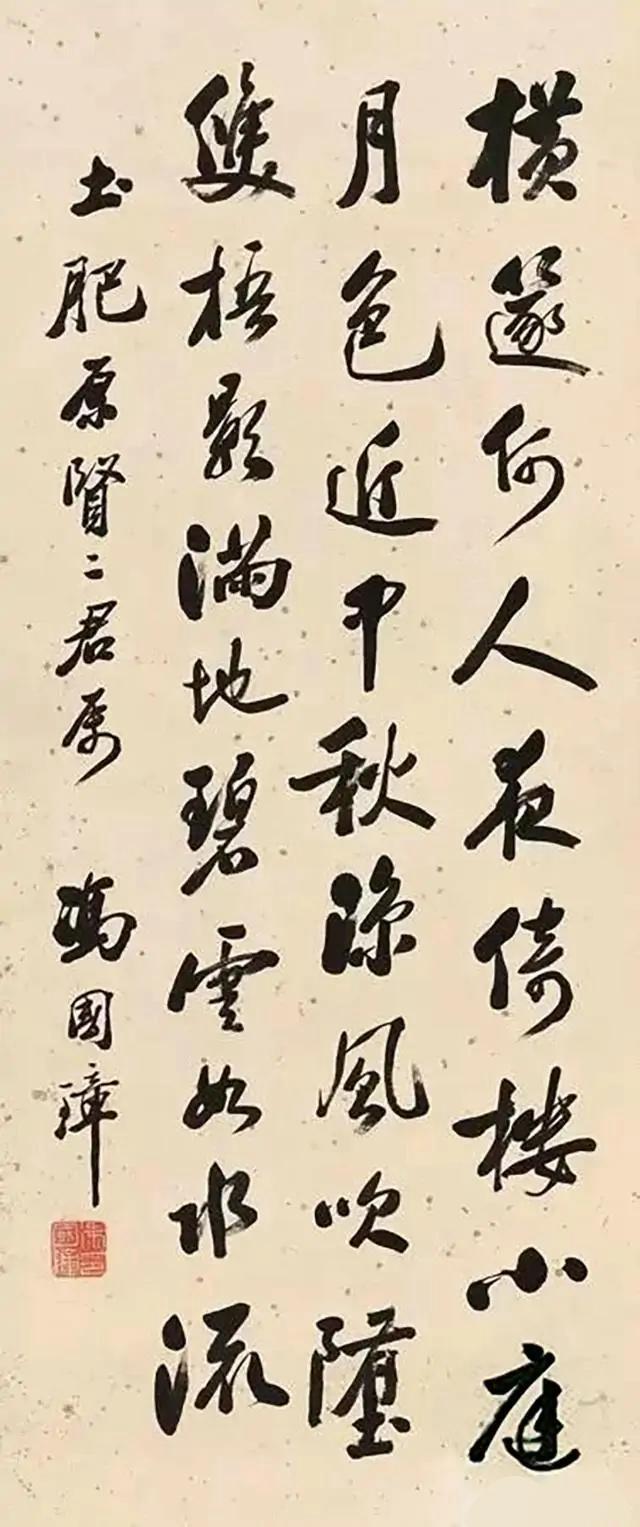 橫篴何人夜倚樓小庭
月色近中秋涼風吹墮
雙梧影滿地碧雲如水流
土肥原賢二君屬 馮國璋